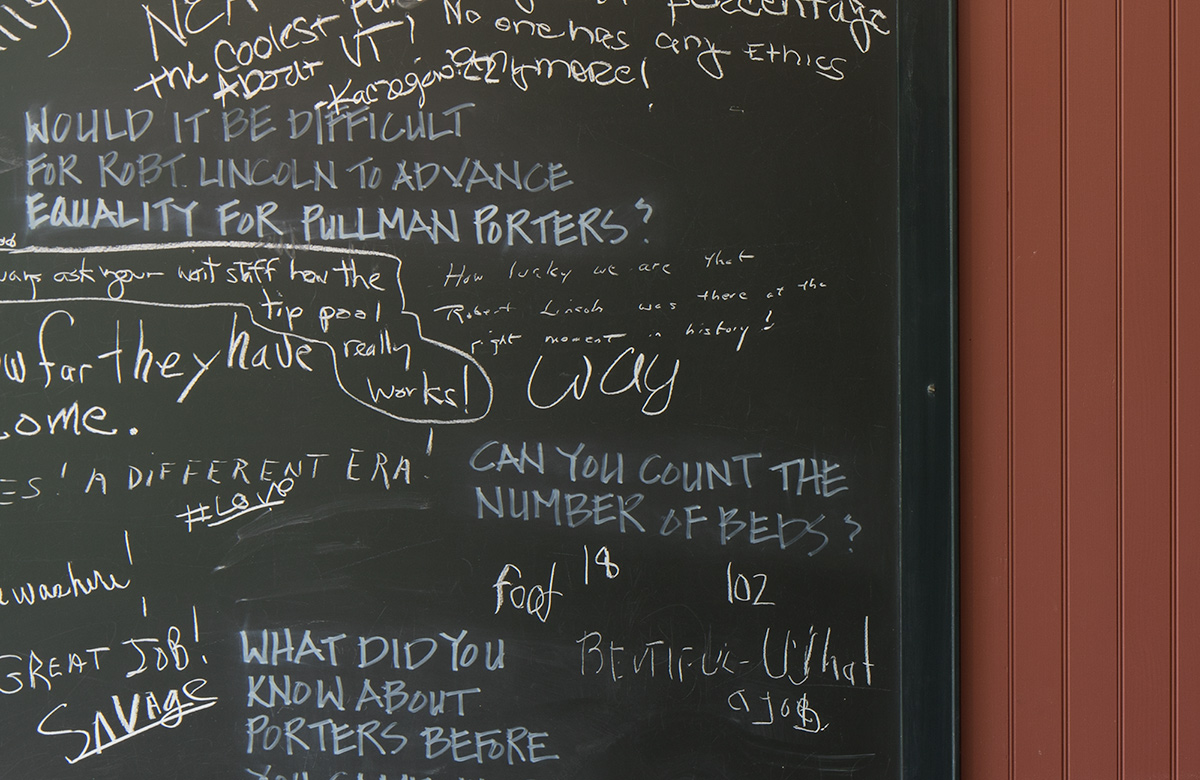 the COOLEST
ABOUT VT!
percentage
No one has any ETHICS
anymore!
WOULD IT BE DIFFICULT
FOR ROBT. LINCOLN TO ADVANCE
EQUALITY FOR PULLMAN PORTERS?
ask your wait stiff how the
tip pool
really
works!
How lucky we are that
Robert Lincoln was there at the
right moment in history!
far they have
ome.
way
ES! A DIFFERENT ERA!
#LOVE
CAN YOU COUNT THE
NUMBER OF BEDS?
18
102
was here!
GREAT JOB!
SAVAGE
BEUTIFUL - What
a JOB.
WHAT DID YOU
KNOW ABOUT
PORTERS BEFORE